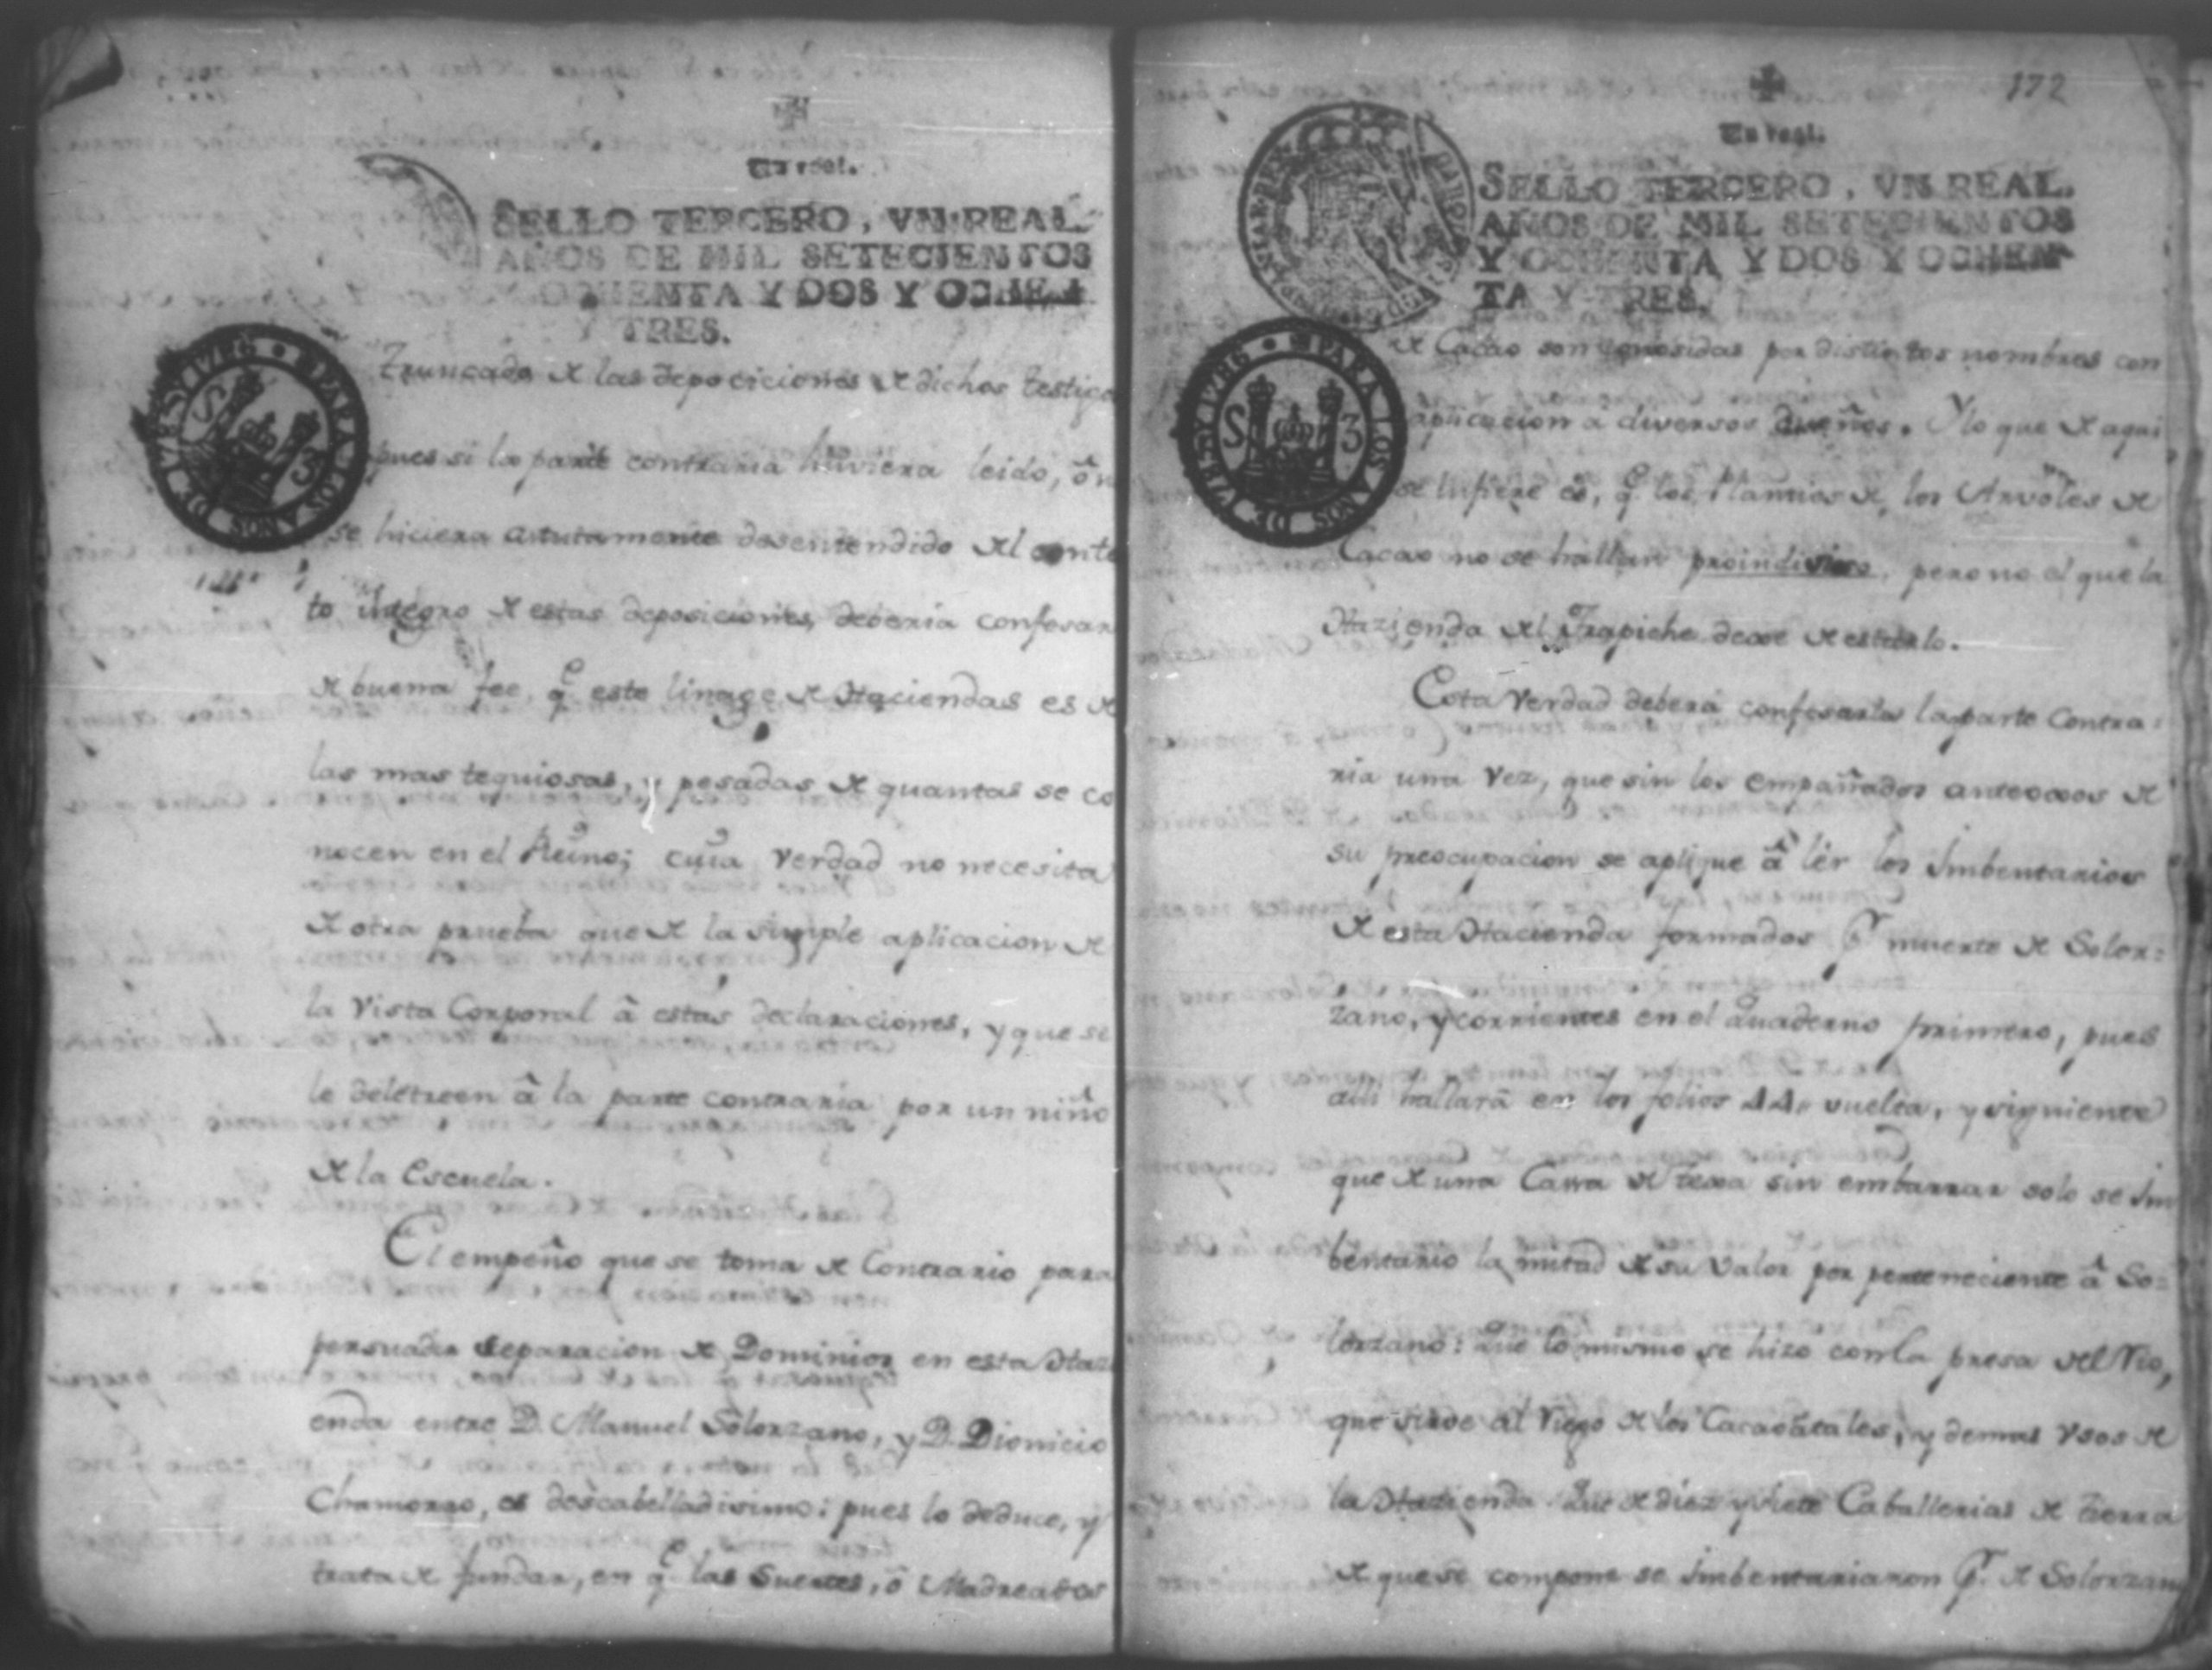 Un real.
SELLO TERCERO, VN REAL.
AÑOS DE MIL SETECIENTOS
Y OCHENTA Y DOS Y OCHEN
Y TRES.
PARA LOS AÑOS DE 1785 Y 1786
S 3
truncado de las deposiciones de dichos testigo
pues si la parte contraria huviera leido, ô n
se hiciera astutamente desentendido del conte
to integro de estas deposiciones, deberia confesar
de buena fee, q.e este linage de Haciendas es de
las mas tequiosas, y pesadas de quantas se co
nocen en el Reino; cuia verdad no necesita
de otra prueba que de la simple aplicacion de
la Vista Corporal â estas declaraciones, y que se
le deletreen â la parte contraria por un niño
de la Escuela.
El empeño que se toma de Contrario para
persuadir separacion de Dominios en esta Hazi
enda entre D. Manuel Solorzano, y D. Dionicio
Chamorro, es descabelladisimo: pues lo deduce, y
trata de fundar, en q.e las Suertes, ô Madreados
172
Un real.
SELLO TERCERO, VN REAL.
AÑOS DE MIL SETECIENTOS
Y OCHENTA Y DOS Y OCHEN
TA Y TRES.
PARA LOS AÑOS DE 1785 Y 1786
S 3
de Cacao son conosidas por distintos nombres con
aplicacion â diversos dueños. Y lo que de aqui
se infiere es, q.e los Plantios de los Arvoles de
Cacao no se hallan proindiviso, pero no el que la
Hazienda del Trapiche dexe de estarlo.
Esta verdad deberá confesarla la parte Contra=
ria una vez, que sin los empañados anteoxos de
su preocupacion se aplique â lér los Imbentarios
de esta Hacienda formados p.r muerte de Solor=
zano, y corrientes en el Quaderno primero, pues
alli hallarâ en los folios 44 vuelta, y siguiente
que de una Casa de texa sin embarrar solo se Im
bentario la mitad de su valor por perteneciente â So=
lorzano: Que lo mismo se hizo con la presa del Rio,
que sirve al Riego de los Cacaôtales, y demas Vsos de
la Hazienda. Que de diez y siete Caballerias de tierra
de que se compone se Imbentariaron p.r de Solorzano